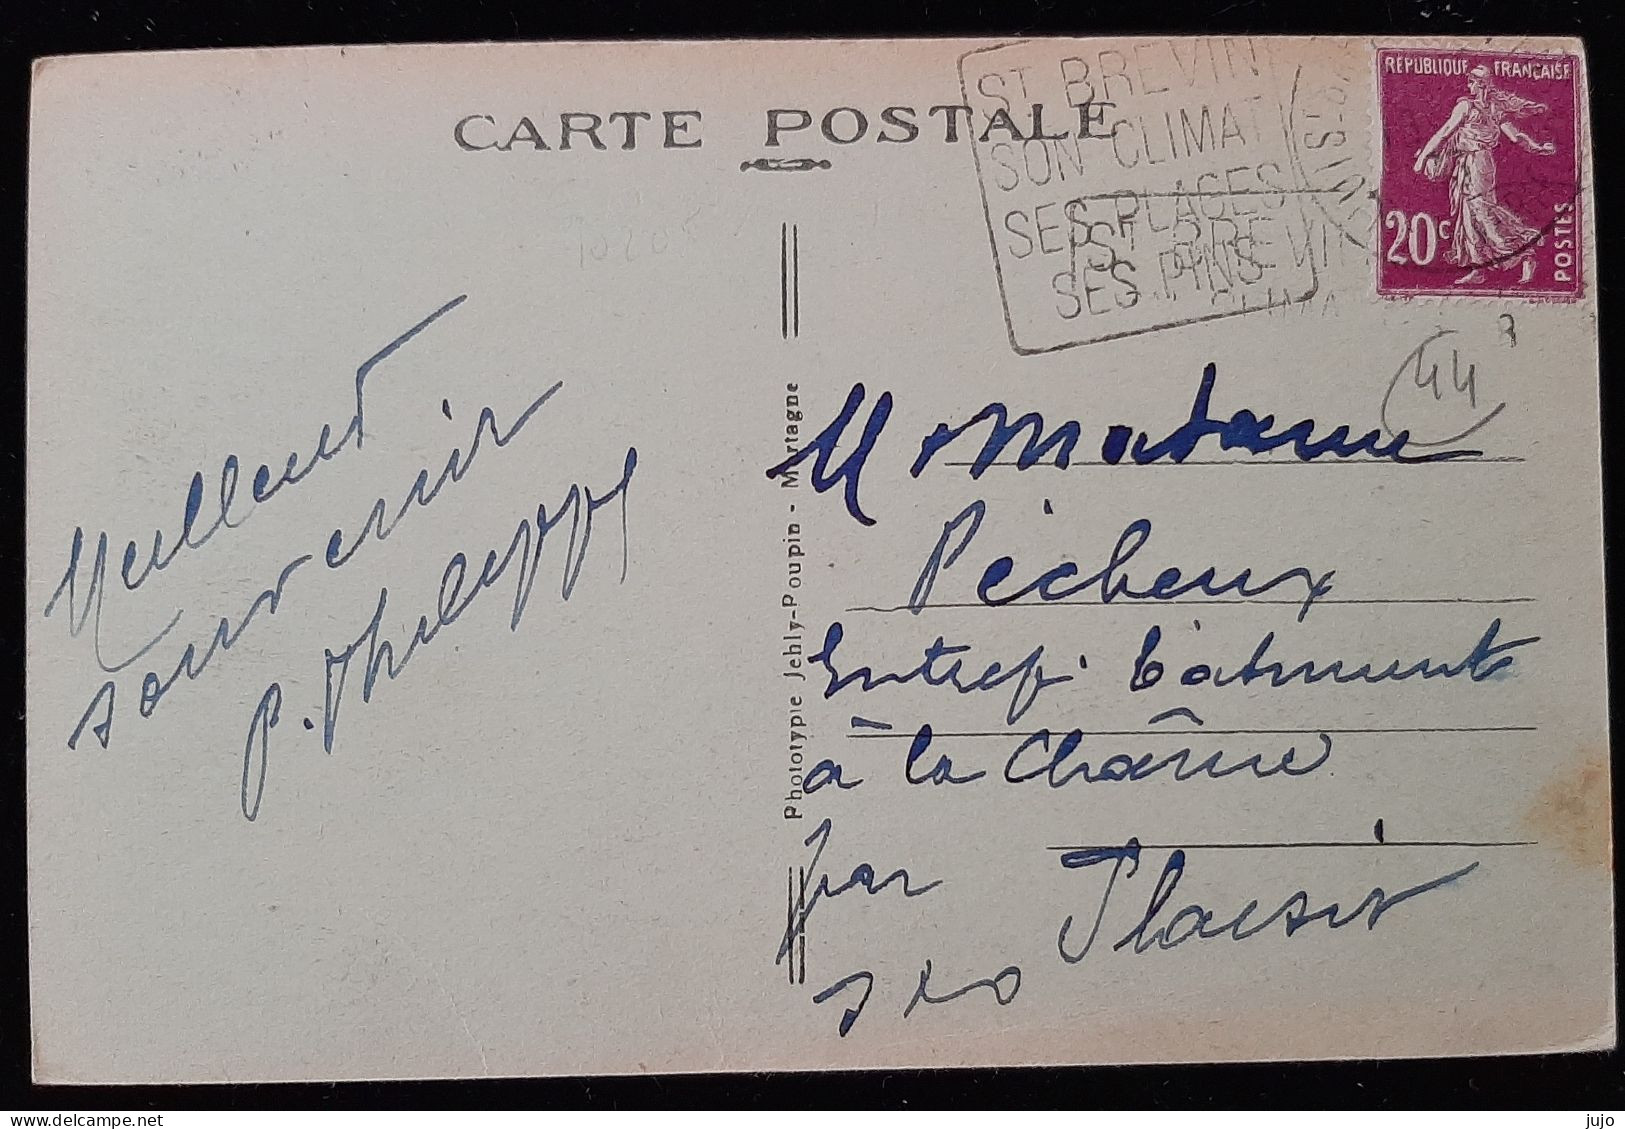 CARTE POSTALE
ST BREVIN
SON CLIMAT
SES PLAGES
SES PINS
ST BREVIN
RÉPUBLIQUE FRANÇAISE
20c
POSTES
44
Meilleur
souvenir
P. Philippe
Phototypie Jehly-Poupin - Mortagne
M et Madame
Pêcheux
Entrep. bâtiment
à la Chaîne
par Plaisir
S et O
jujo